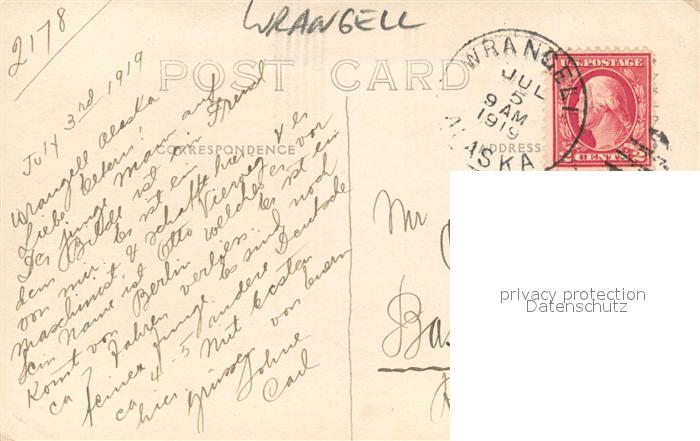 2178
WRANGELL
POST CARD
CORRESPONDENCE
ADDRESS
WRANGELL
JUL
5
9 AM
1919
ALASKA
U.S. POSTAGE
2 CENTS 2
July 3rd 1919
Wrangell Alaska
Liebe Eltern!
Der junge Mann auf
dem Bilde ist ein Freund
von mir. Es ist ein
Maschinist & schafft hier & es
Sein Name ist Otto Vierweg
Komt von Berlin welches er vor
ca 7 Jahren verliess. Es ist ein
feiner Junge. Es sind noch
ca 4-5 andere Deutsche
hier. Mit besten
Grüssen von Eurem
Sohne
Carl
Mr
Bas
privacy protection
Datenschutz